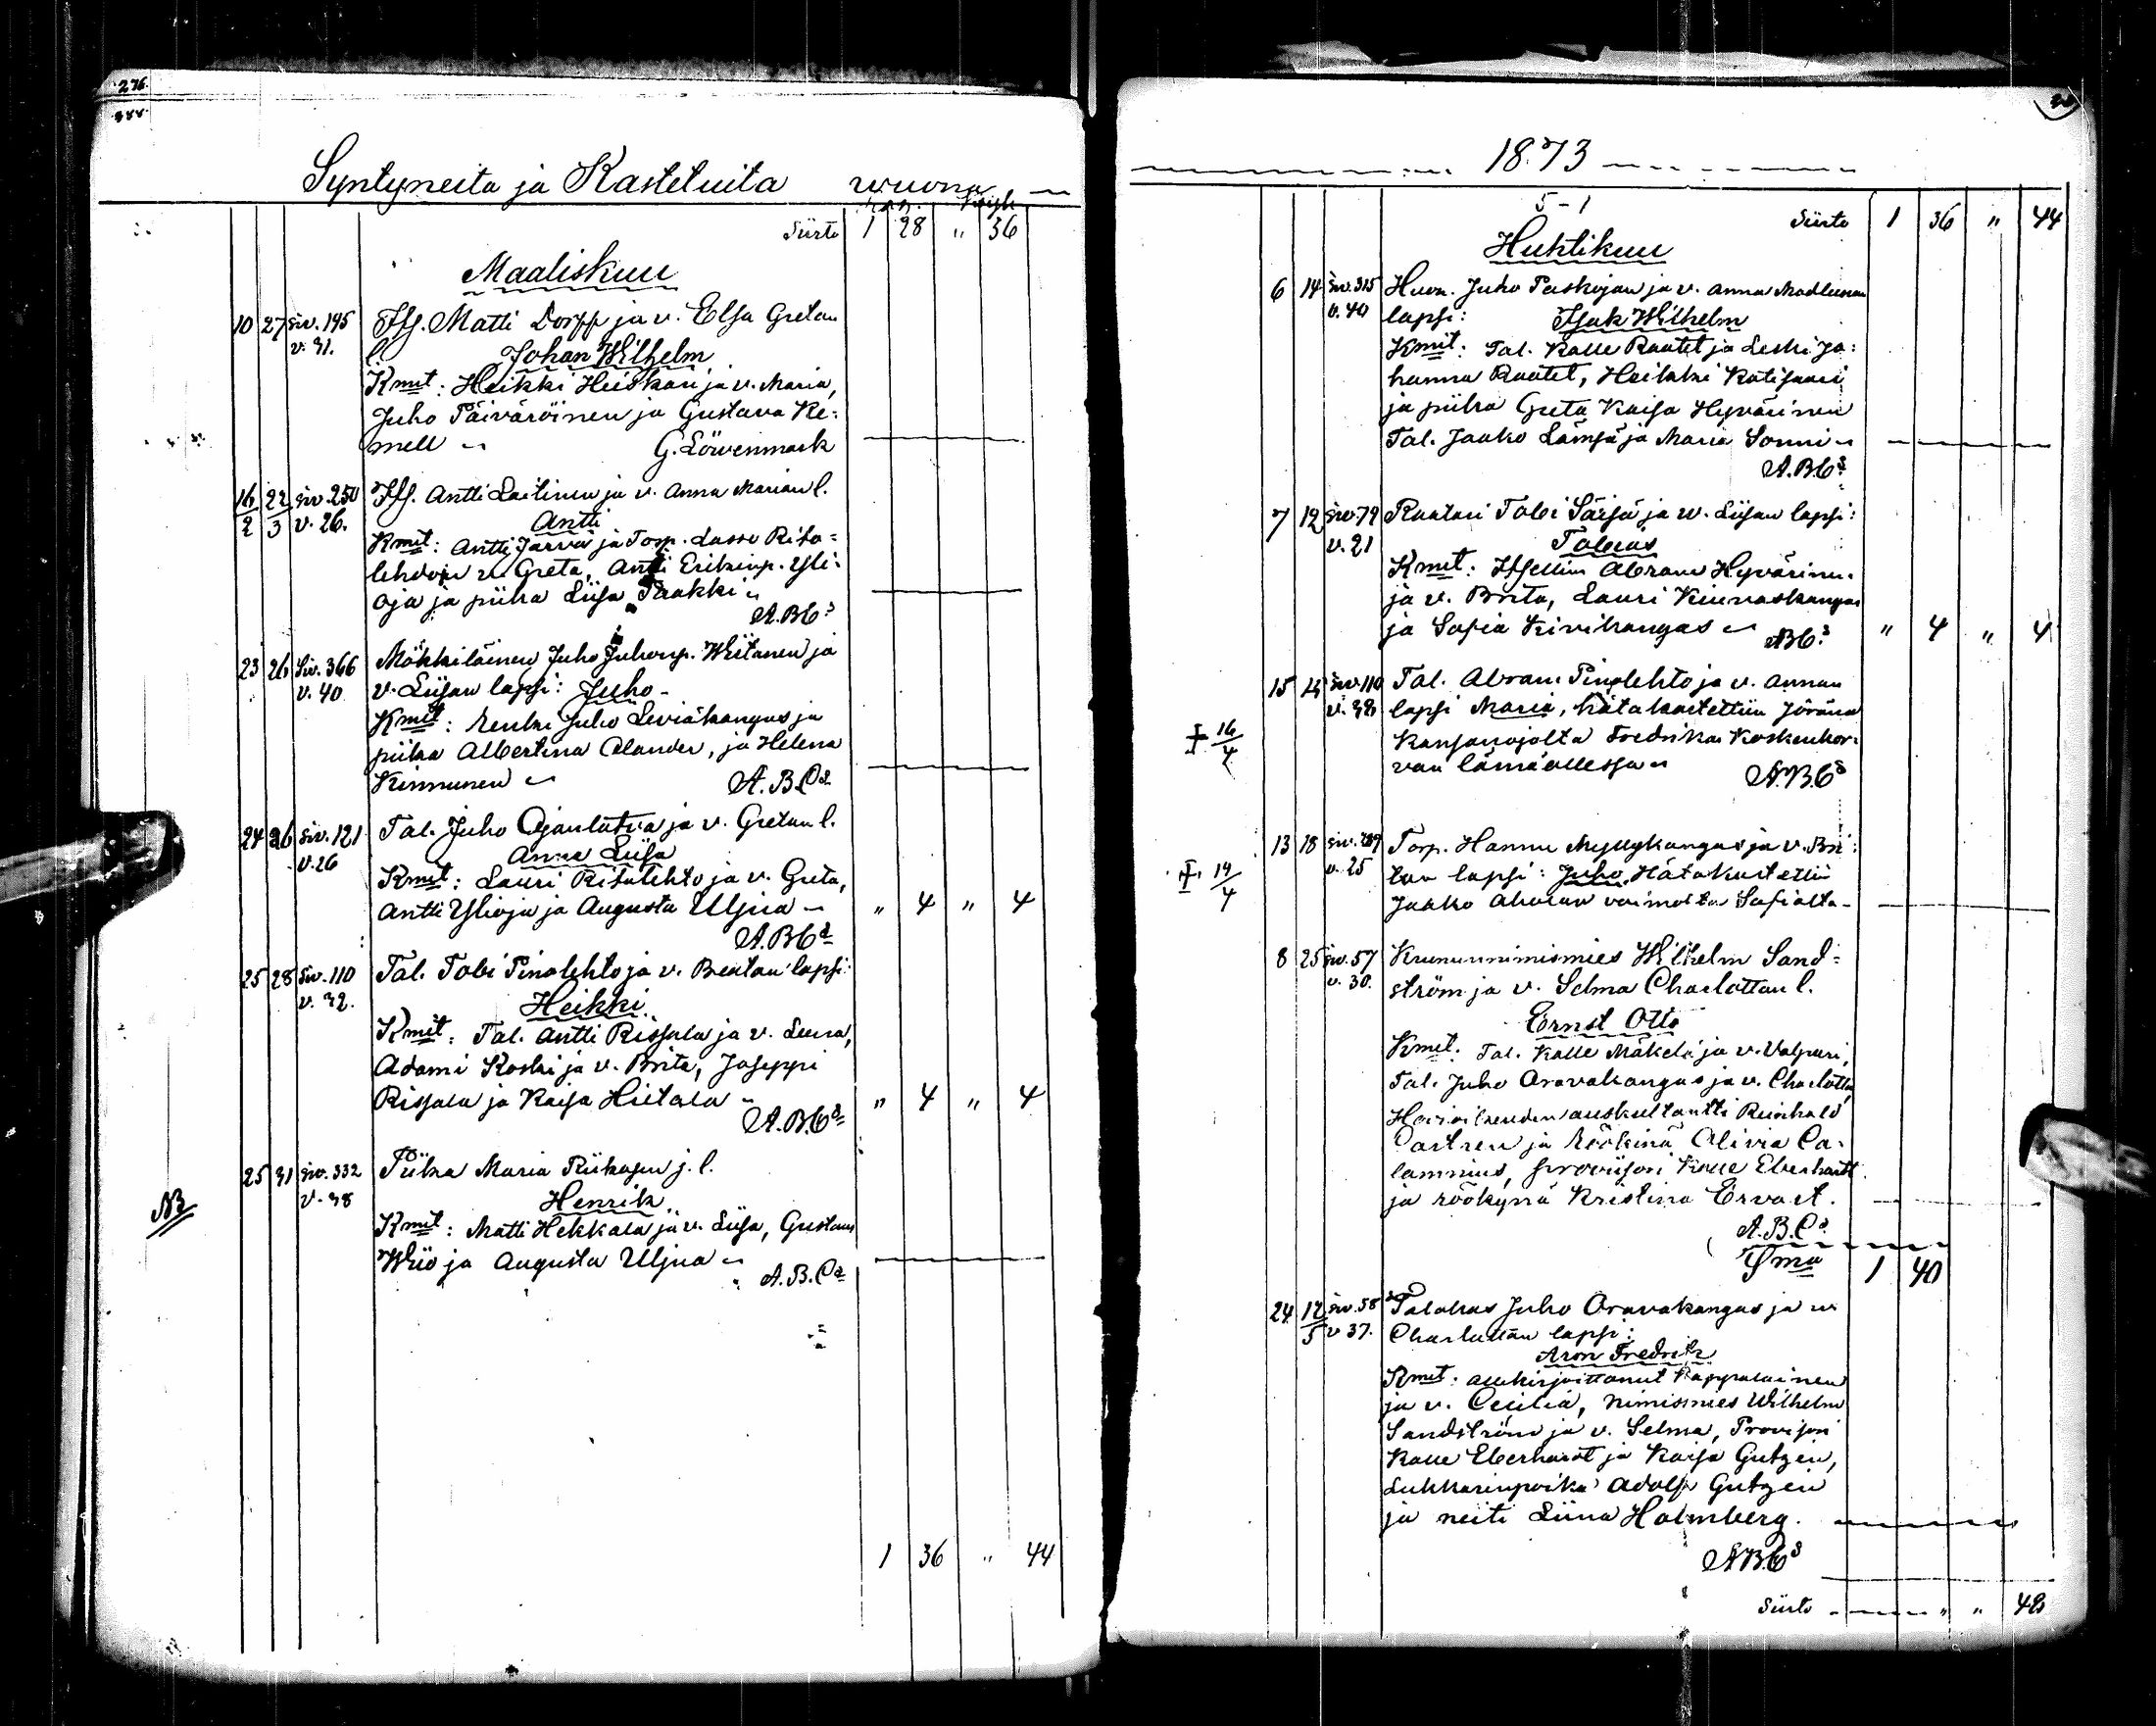 276.
Syntyneita ja Kasteluita wuona
Siirto 1 28 " 36
Maaliskuu
10 27 siv. 195 Itsf. Matti Dorff ja v. Elsa Gretan
v. 31. l. Johan Wilhelm
Kmit: Heikki Heiskari ja v. Maria,
Juho Päiväröinen ja Gustava Ke:
mell G. Löwenmark
16/2 22/3 siv. 250 Itsf. Antti Laitinen ja v. Anna Marian l.
v. 26. Antti
Kmit: Antti Järvi ja Torp. Lasse Rita=
lehdon v. Greta, Antti Erikinp. Yli:
oja ja piika Liisa Paakki "
A.B.C:s
23 26 Siv. 366 Mökkiläinen Juho Juhonp. Wiitanen ja
v. 40 v. Liisan lapsi: Juho-
Kmit: Renki Juho Leviäkangas ja
piika Albertina Alander, ja Helena
Kinnunen A.B.C:s
24 26 siv. 121 Tal. Juho Ojanlatva ja v. Gretan l.
v. 26 Anna Liisa
Kmit: Lauri Ritalehto ja v. Greta,
Antti Ylioja ja Augusta Uljua " 4 " 4
A.B.C:s
25 28 Siv. 110 Tal. Tobi Pinolehto ja v. Beatan lapsi:
v. 32. Heikki.
Kmit: Tal. Antti Rissala ja v. Leena,
Adami Koski ja v. Brita, Joseppi
Rissala ja Kaisa Hietala " 4 " 4
A.B.C:s
25 31 siv. 332 Piika Maria Piikasen j. l.
NB v. 38 Henrik.
Kmit: Matti Hekkala ja v. Liisa, Gustaus
Wiio ja Augusta Uljua
A.B.C:s
1 36 " 44
1873
5-1 Siirto 1 36 " 44
Huhtikuu
6 14 siv. 315 Huon. Juho Paskojan ja v. Anna Madleenan
v. 40 lapsi: Isak Wilhelm
Kmit: Tal. Kalle Raatet ja Leski Jo:
hanna Raatet, Heikki Katisaari
ja piika Greta Kaisa Hyvärinen
Tal. Jaako Lämsä ja Maria Sonni
A.B.C:s
7 12 siv. 79 Raatari Tobi Säisä ja w. Liisan lapsi:
v. 21 Tobias
Kmit: Itsellin Abram Hyvärinen
ja v. Brita, Lauri Kinnaskangas
ja Sofia Kivikangas ABC:s " 4 " 4
15 15 siv. 110 Tal. Abram Pinolehto ja v. Annan
v. 32 lapsi Maria, hätäkastettiin Jörana
† 16/4 Kansanojalta Fredrika Koskenkor:
van läsnäollessa
A.B.C:s
13 18 siv. 289 Torp. Hannu Myllykangas ja v. Bri:
† 14/4 v. 25 tan lapsi: Juho, Hätäkastettii
Jaako Ahosen vaimolta Sofialta-
8 25 siv. 57 Kruununnimismies Wilhelm Sand=
v. 30. ström ja v. Selma Charlottan l.
Ernst Otto
Kmit: Tal. Kalle Mäkelä ja v. Valpuri,
Tal. Juho Oravakangas ja v. Charlotta,
Hovioikeuden auskultantti Reinhold
Castren ja röökinä Olivia Ca-
lamnius, provisori Kalle Eberhardt
ja röökynä Kristina Ervast.
A.B.C:s
Sma 1 40
24 12/5 siv. 58 Talokas Juho Oravakangas ja w
v 37. Charlottan lapsi:
Aron Fredrik
Kmit: allekirjoittanut Kappalainen
ja v. Cecilia, nimismies Wilhelm
Sandström ja v. Selma, Provisori
Kalle Eberhardt ja Kaisa Gutzén,
Lukkarinpoika Adolf Gutzén
ja neiti Liina Holmberg.
A.B.C:s
Siirto " " 48